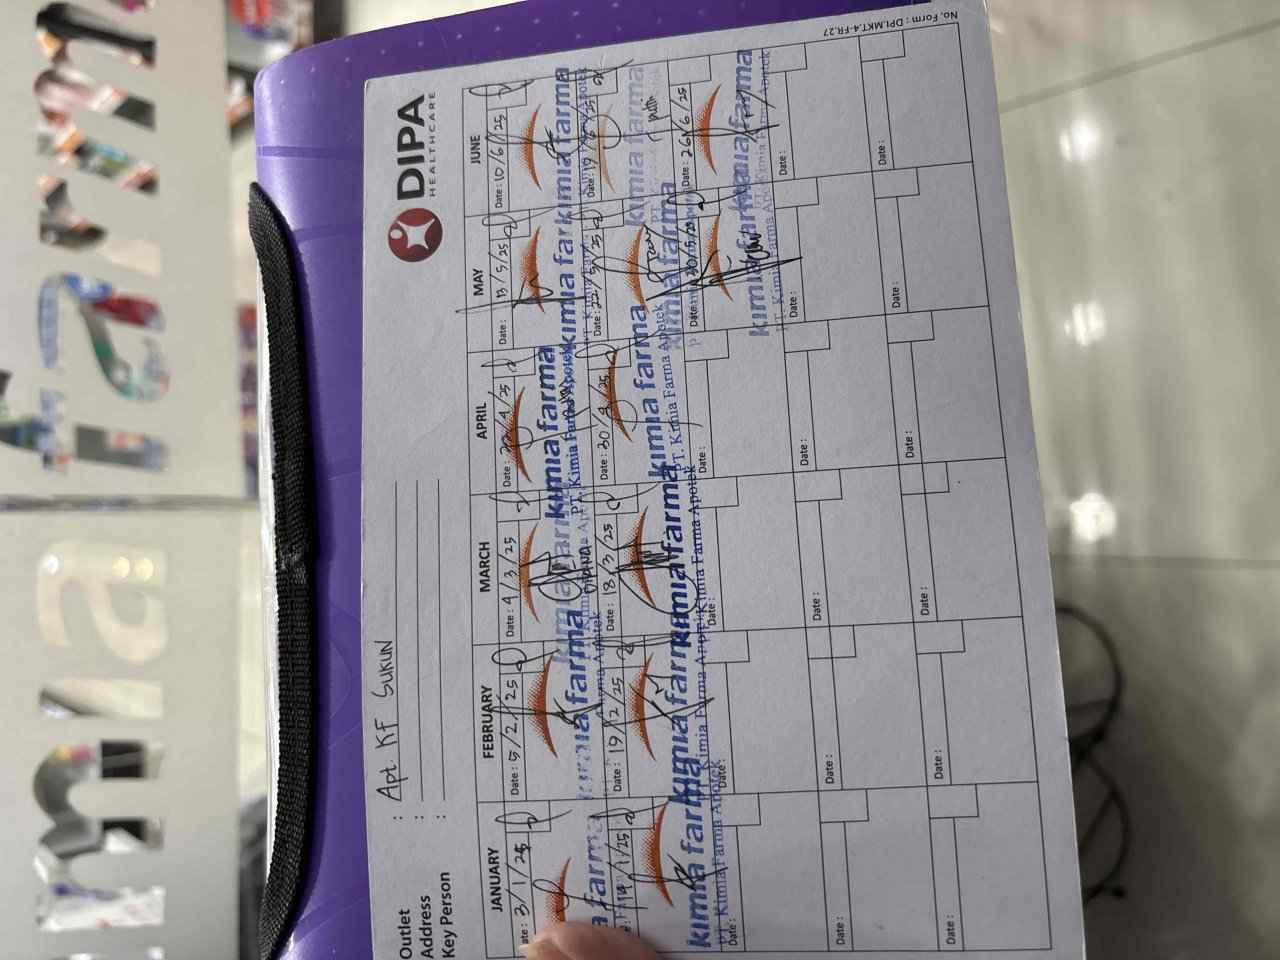 DIPA
HEALTHCARE
No. Form : DPI.MKT.4-FR.27
Outlet : Apt. KF SUKUN
Address :
Key Person :
JANUARY FEBRUARY MARCH APRIL MAY JUNE
Date : 3/1/25 Date : 5/2/25 Date : 4/3/25 Date : /4/25 Date : 13/5/25 Date : 10/6/25
farma kimia farma kimia farma kimia farma kimia farma kimia farma
PT. Kimia Farma Apotek
14/1/25 Date : 19/2/25 Date : 18/3/25 Date : 30/4/25 Date : 22/5/25 Date : 19/6/25
kimia farma kimia farma kimia farma kimia farma kimia farma kimia farma
PT. Kimia Farma Apotek Kimia Farma Apotek Kimia Farma Apotek PT. Kimia Farma Apotek
Date : Date : Date : Date : Date : 30/5/25 Date : 26/6/25
kimia farma kimia farma
PT. Kimia Farma Apotek Kimia Farma Apotek
Date : Date : Date : Date : Date : Date :
Date : Date : Date : Date : Date : Date :